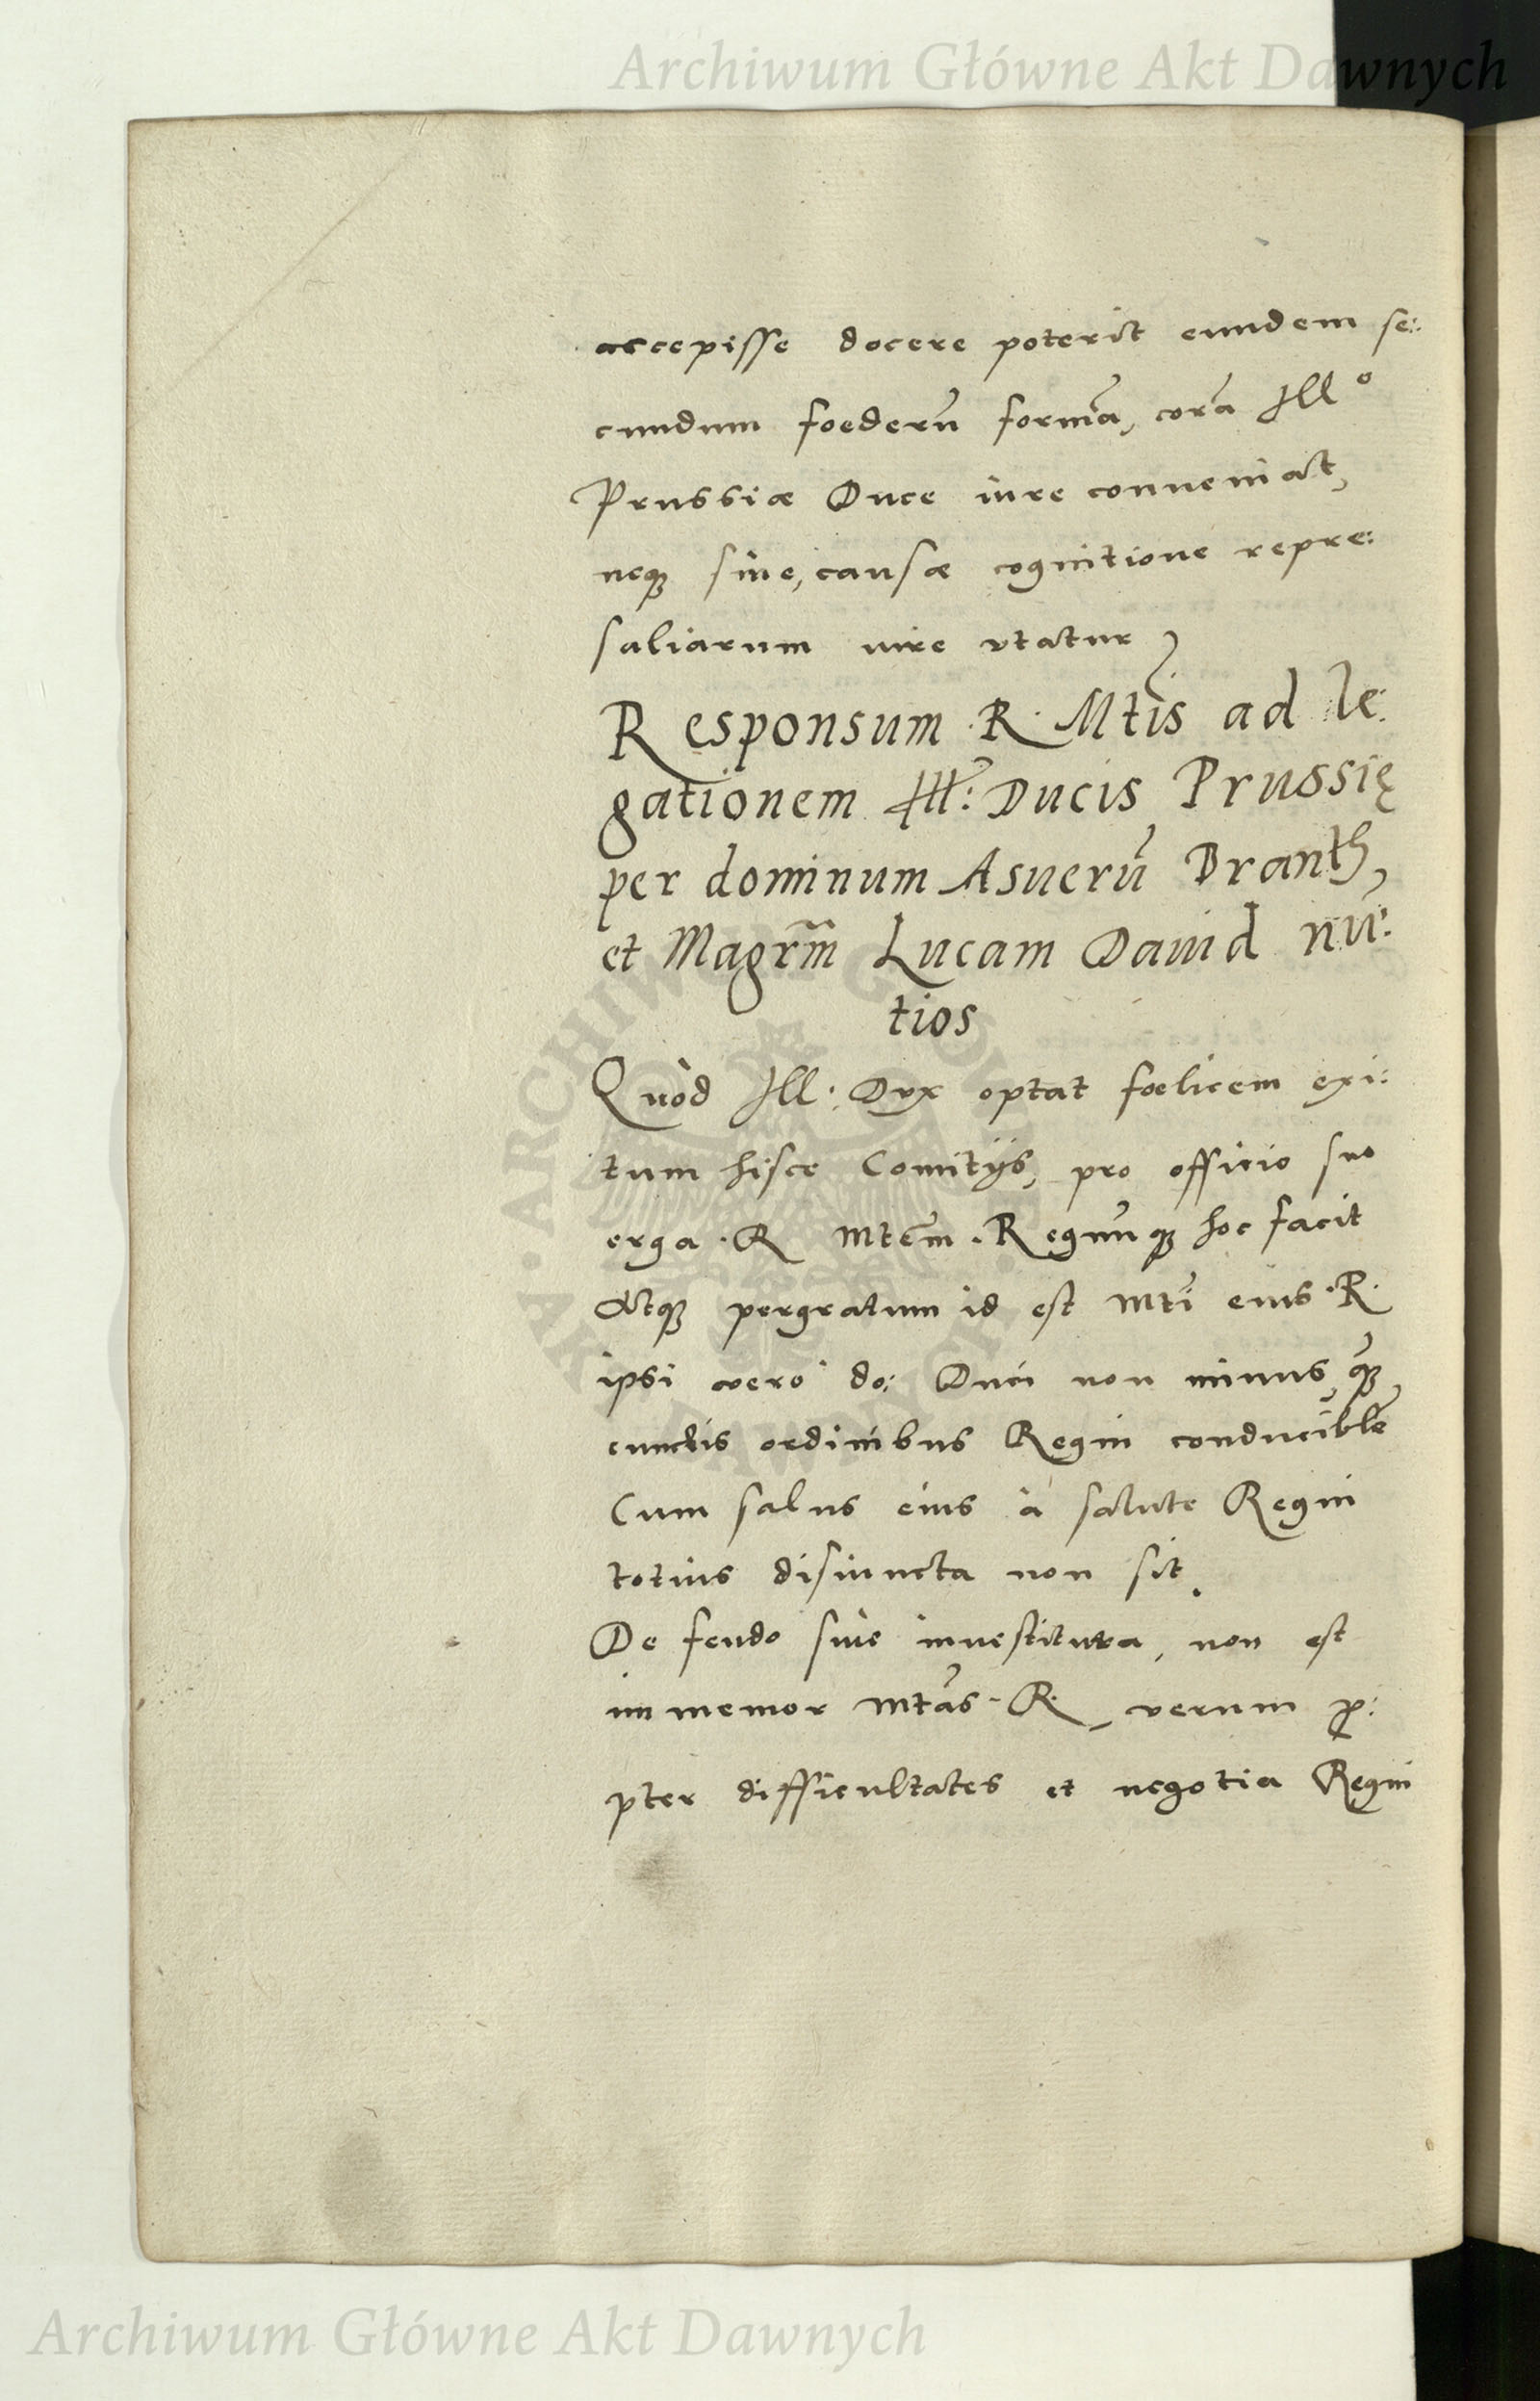 Archiwum Główne Akt Dawnych
accepisse docere poterit eundem se:
cundum foederũ formã, corã Illº
Prussiæ Duce iure conueniat,
neq; sine, causæ cognitione repre:
saliarum iure vtatur
Responsum R. Mtis ad le:
gationem Ill: Ducis Prussię
per dominum Asuerũ Branth,
et Magrm̃ Lucam Dauid nũ:
tios
Quòd Ill: Dux optat foelicem exi:
tum hisce Comitijs, pro officio suo
erga R Mtem̃ Regnũq; hoc facit
Atq; pergratum id est Mti eius R.
ipsi vero do: Duci non minus, qũ
cunctis ordinibus Regni conducible
Cum salus eius à salute Regni
totius disiuncta non sit.
De feudo siue inuestitura, non est
immemor Mtãs R, verum p:
pter difficultates et negotia Regni
ARCHIWUM GŁÓWNE AKT DAWNYCH
Archiwum Główne Akt Dawnych